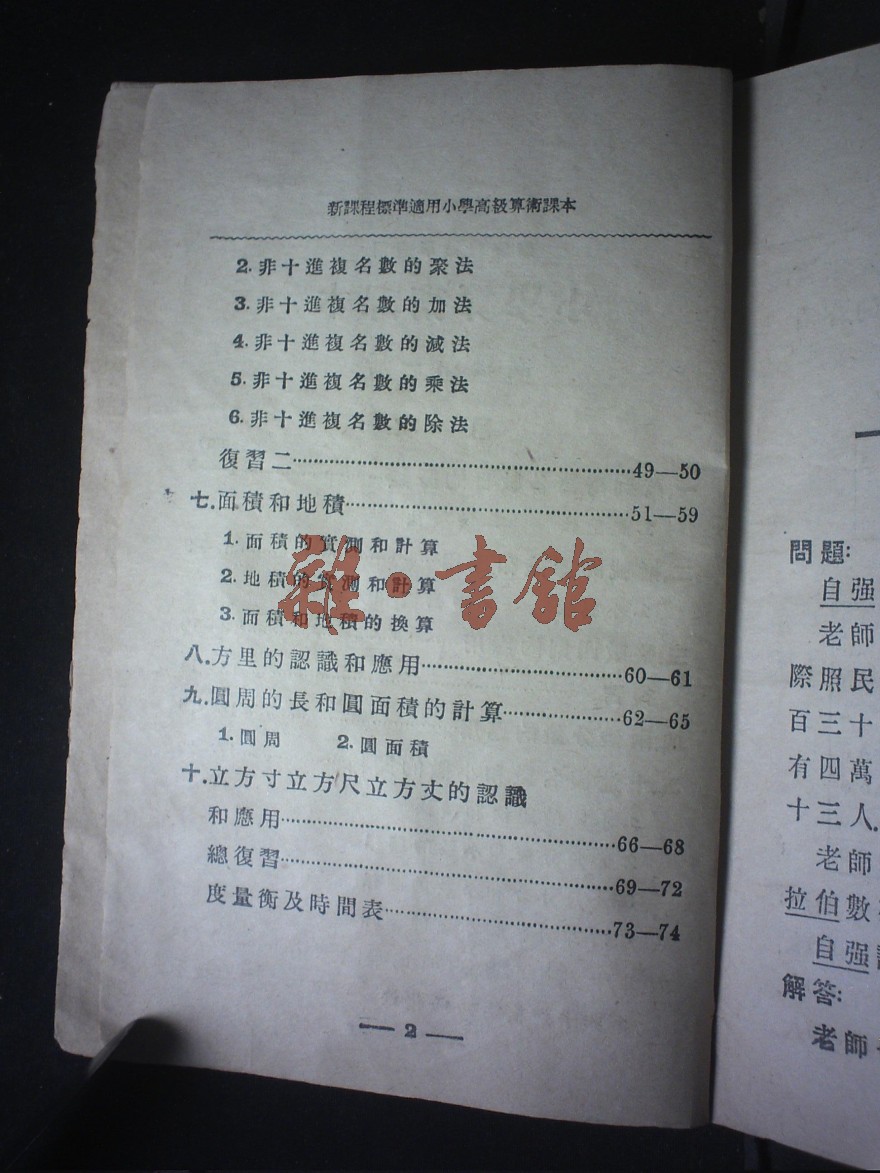 新課程標準適用小學高級算術課本
2. 非十進複名數的聚法
3. 非十進複名數的加法
4. 非十進複名數的減法
5. 非十進複名數的乘法
6. 非十進複名數的除法
復習二……49—50
七.面積和地積……51—59
1. 面積的實測和計算
2. 地積的實測和計算
3. 面積和地積的換算
八.方里的認識和應用……60—61
九.圓周的長和圓面積的計算……62—65
1. 圓周 2. 圓面積
十.立方寸立方尺立方丈的認識
和應用……66—68
總復習……69—72
度量衡及時間表……73—74
— 2 —
雜·書館
問題:
自强
老師
際照民
百三十
有四萬
十三人.
老師
拉伯數
自强
解答:
老師